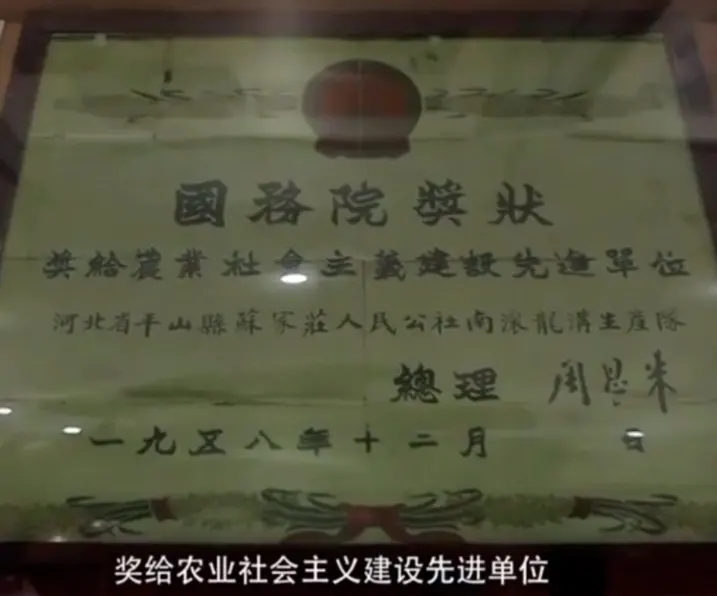 國務院獎狀
奬給農業社會主義建設先進單位
河北省平山縣蘇家莊人民公社南滚龍溝生產隊
總理 周恩来
一九五八年十二月 日
奖给农业社会主义建设先进单位